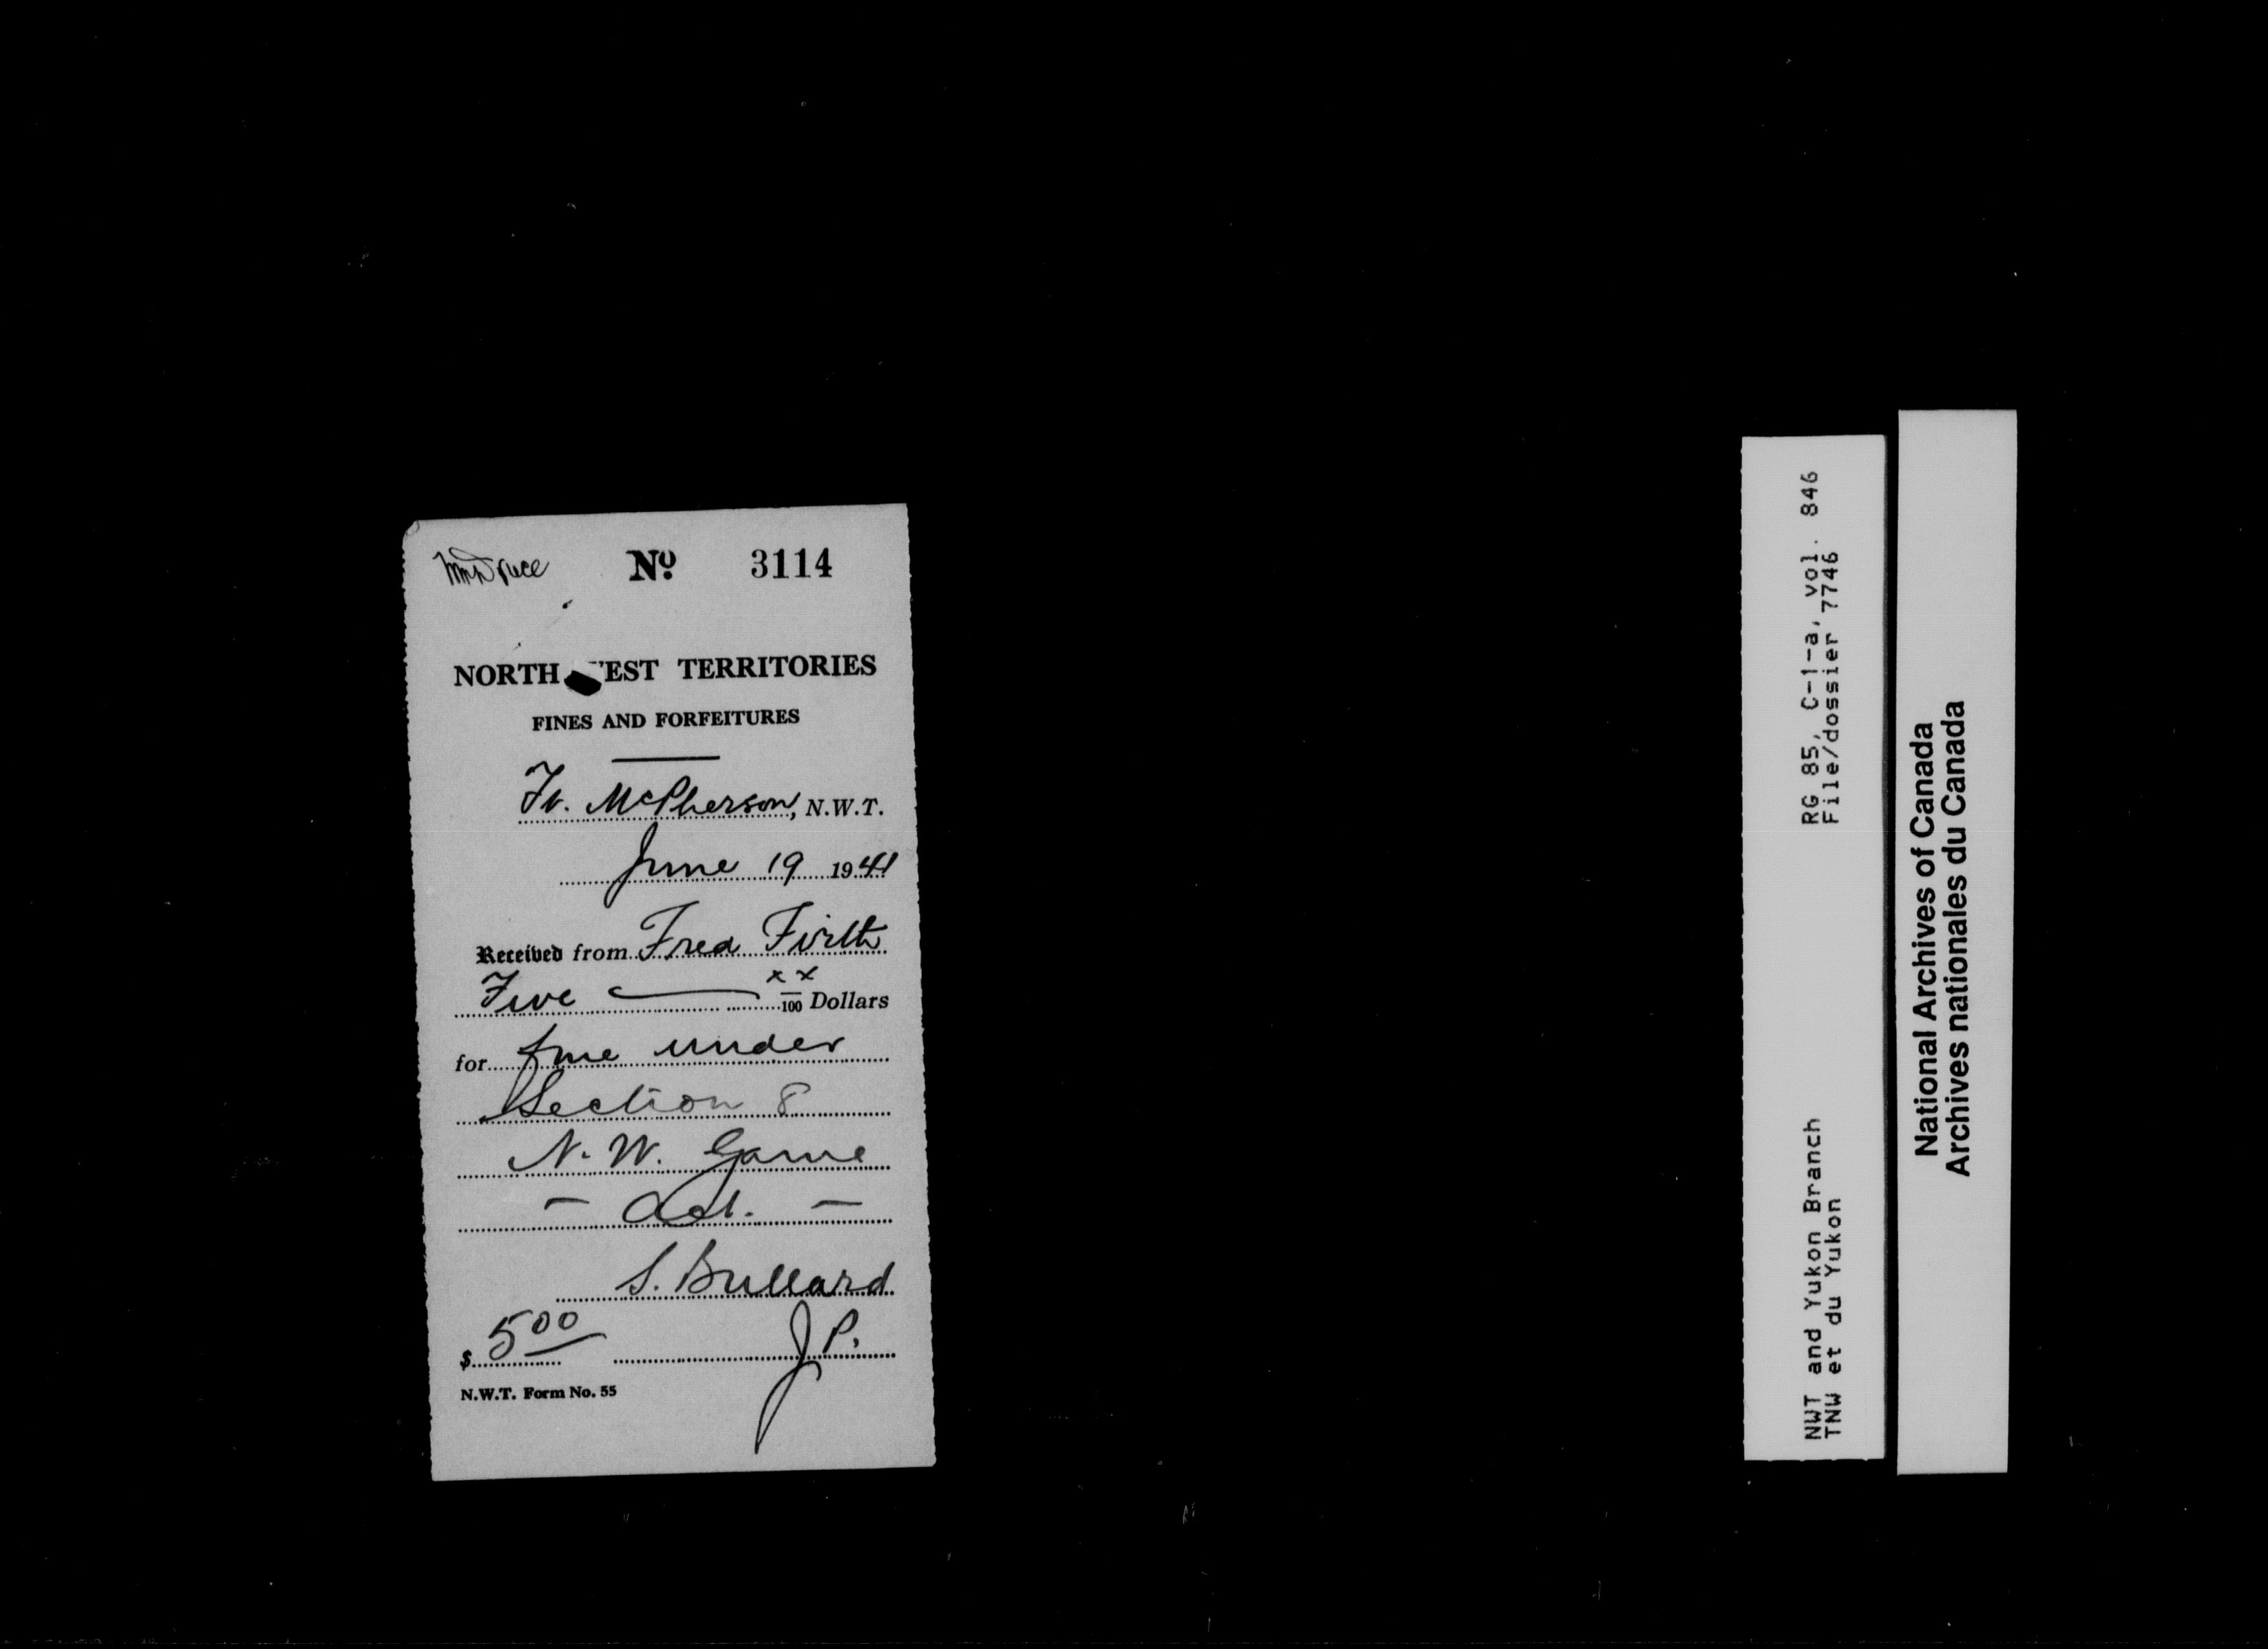 No 3114
NORTH WEST TERRITORIES
FINES AND FORFEITURES
Ft. McPherson, N.W.T.
June 19 1941
Received from Fred Firth
Five xx/100 Dollars
for fine under
Section 8
N. W. Game
- Act. -
S. Bullard
$ 5 00 J.P.
N.W.T. Form No. 55
RG 85, C-1-a, vol. 846
File/dossier 7746
NWT and Yukon Branch
TNW et du Yukon
National Archives of Canada
Archives nationales du Canada